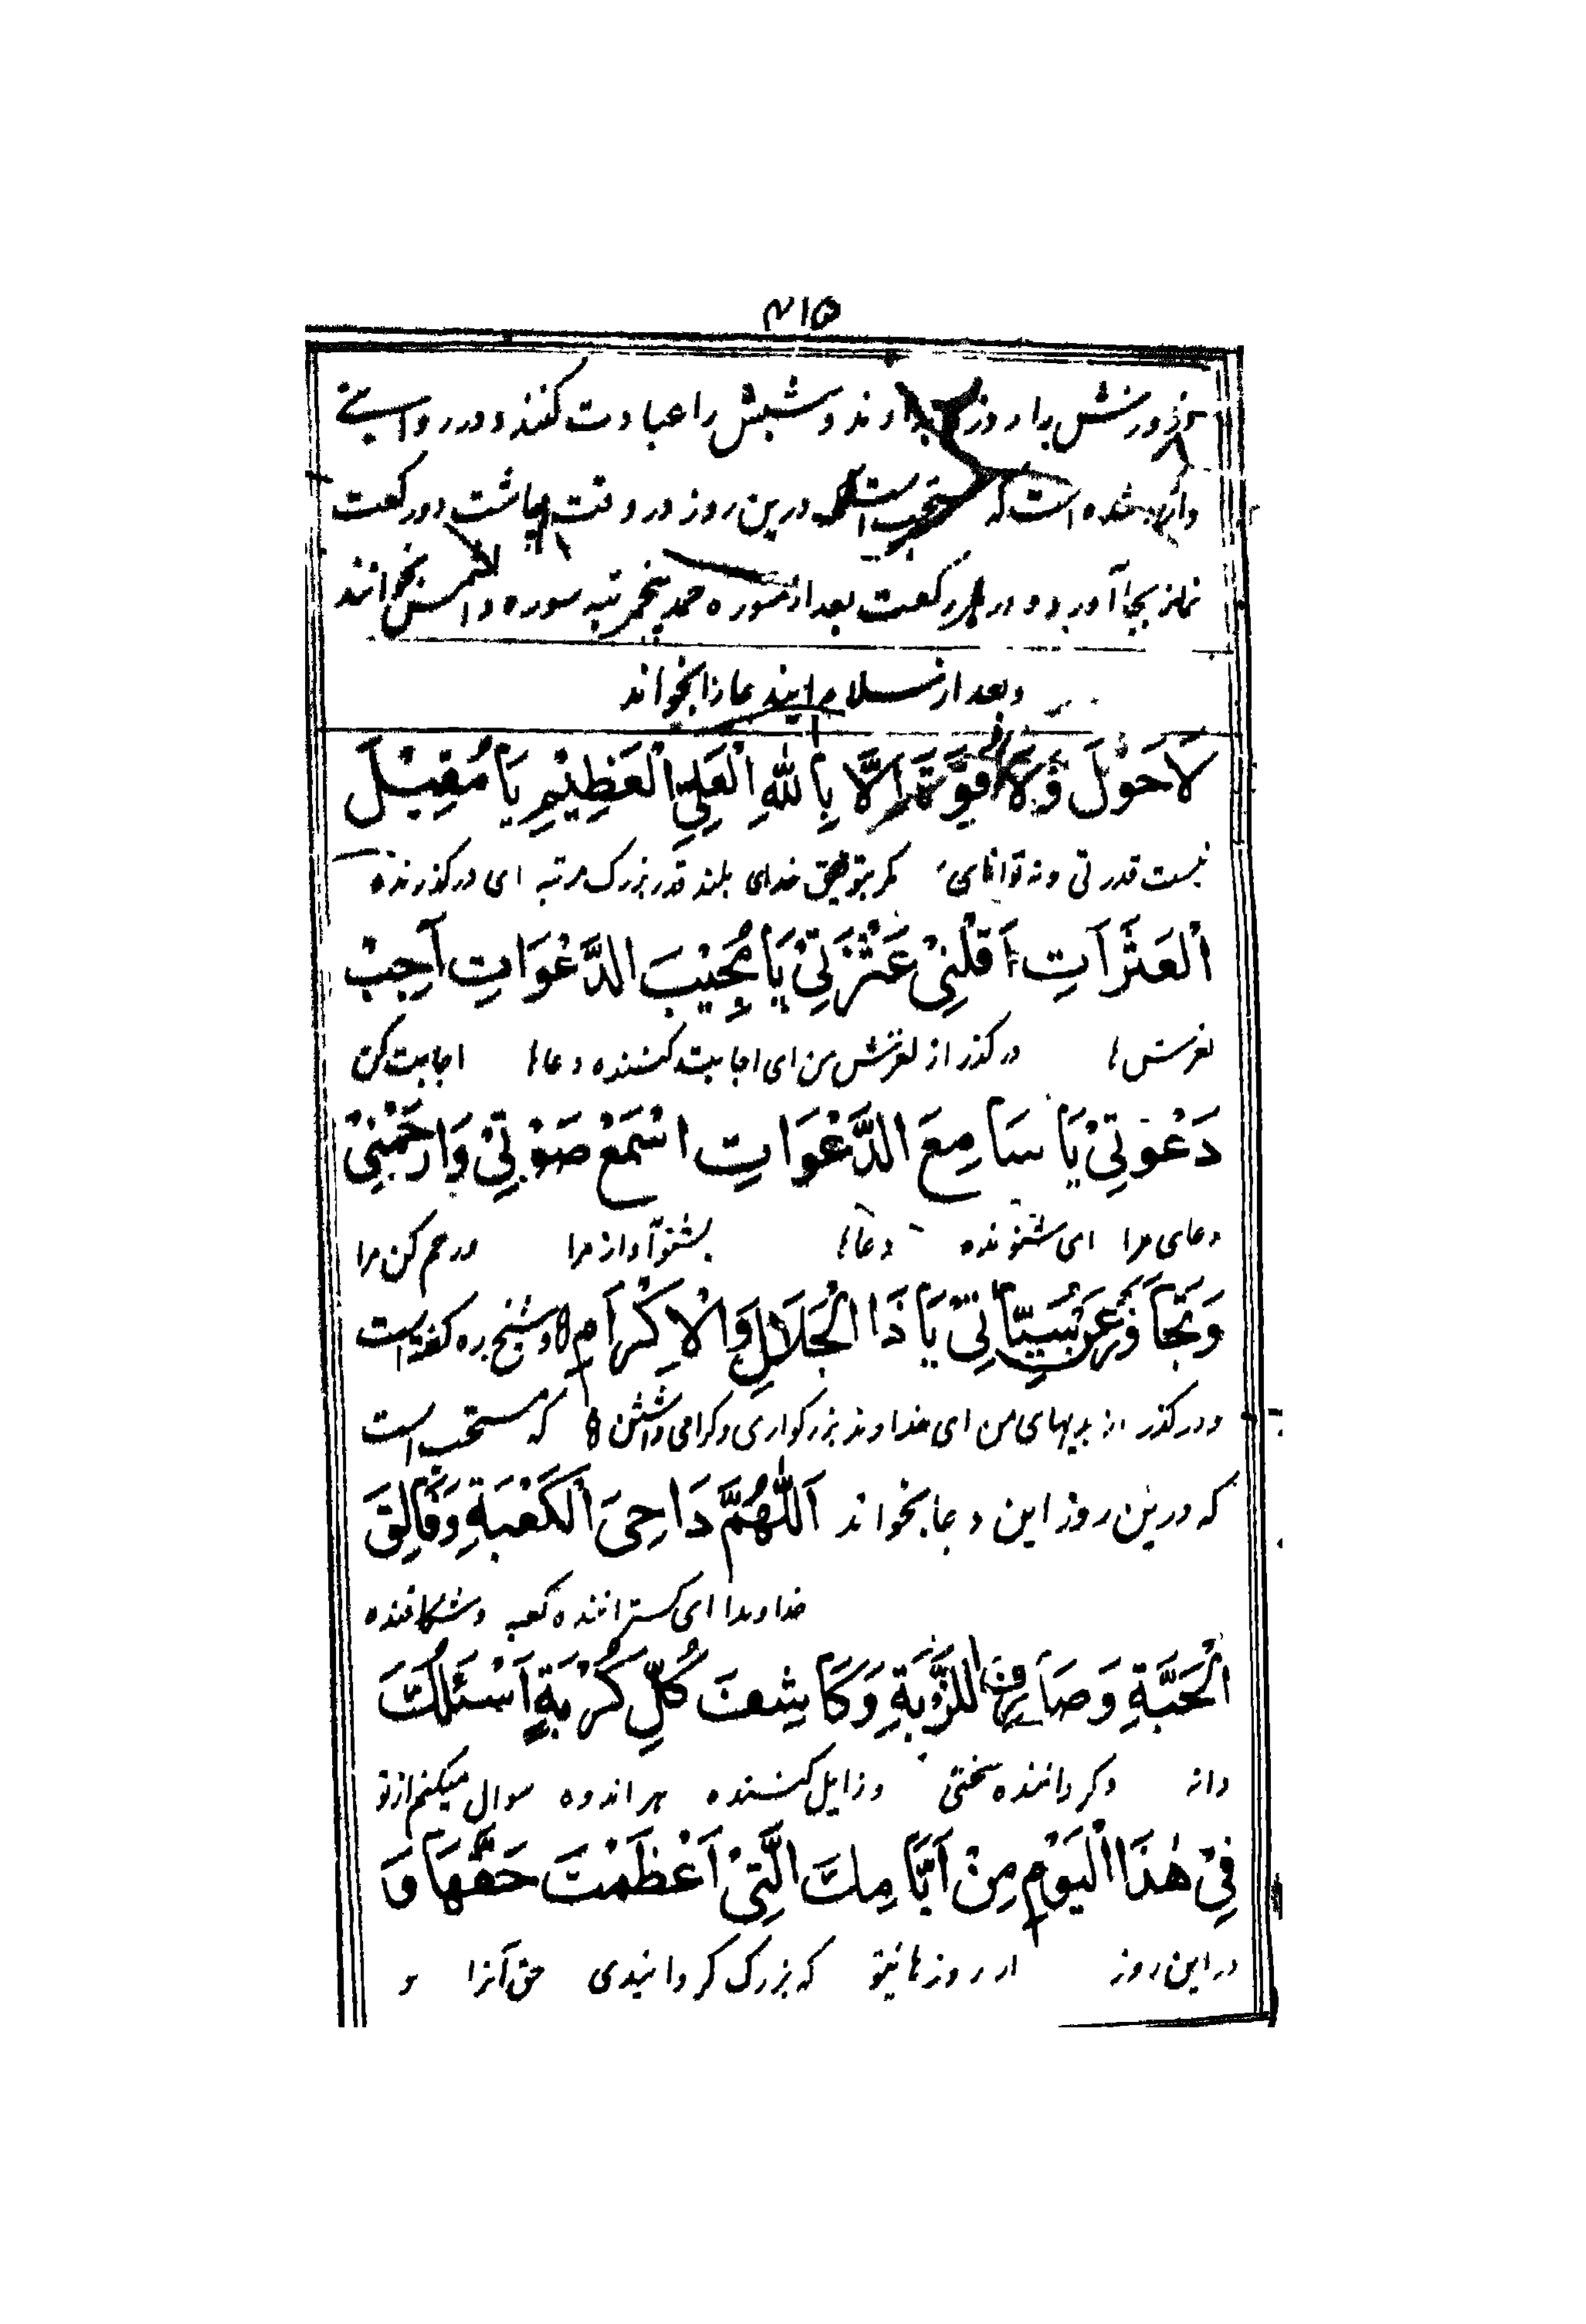 ۲۱۵
روزش را روزه بدارند و شبش را عبادت کنند و در روایتے
وارد شده است که مستحب است که درین روز در وقت چاشت دو رکعت
نماز بجا آورد و در هر رکعت بعد از سوره حمد پنجمرتبه سوره والشمس بخوانند
و بعد از سلام ایندعا را بخواند
لَا حَوْلَ وَلَا قُوَّةَ اِلَّا بِاللّٰهِ الْعَلِيِّ الْعَظِيْمِ يَا مُقِيْلَ
نیست قدرتی و نه توانای مگر بتوفیق خدای بلند قدر بزرک مرتبه ای درگذرنده
الْعَثَرَاتِ اَقِلْنِيْ عَثْرَتِيْ يَا مُجِيْبَ الدَّعْوَاتِ اَجِبْ
لغزشها درگذر از لغزش من ای اجابت کننده دعاها اجابت کن
دَعْوَتِيْ يَا سَامِعَ الدَّعْوَاتِ اسْمَعْ صَوْتِيْ وَارْحَمْنِيْ
دعای مرا ای شنونده دعاها بشنو آواز مرا و رحم کن مرا
وَتَجَاوَزْ عَنْ سَيِّاٰتِيْ يَا ذَا الْجَلَالِ وَالْاِكْرَامِ و شیخ ره گفته است
و درگذر از بدیهای من ای خداوند بزرکواری و کرامی داشتن که مستحب است
که درین روز این دعا بخواند اَللّٰهُمَّ دَاحِيَ الْكَعْبَةِ وَفَالِقَ
خداوندا ای گستراننده کعبه و شکافنده
الْحَبَّةِ وَصَارِفَ اللَّزْبَةِ وَكَاشِفَ كُلِّ كُرْبَةٍ اَسْئَلُكَ
دانه و گرداننده سختی و زایل کننده هر اندوه سوال میکنم از تو
فِيْ هٰذَا الْيَوْمِ مِنْ اَيَّامِكَ الَّتِيْ اَعْظَمْتَ حَقَّهَا وَ
در این روز از روزهایتو که بزرک گردانیدی حق آنرا و